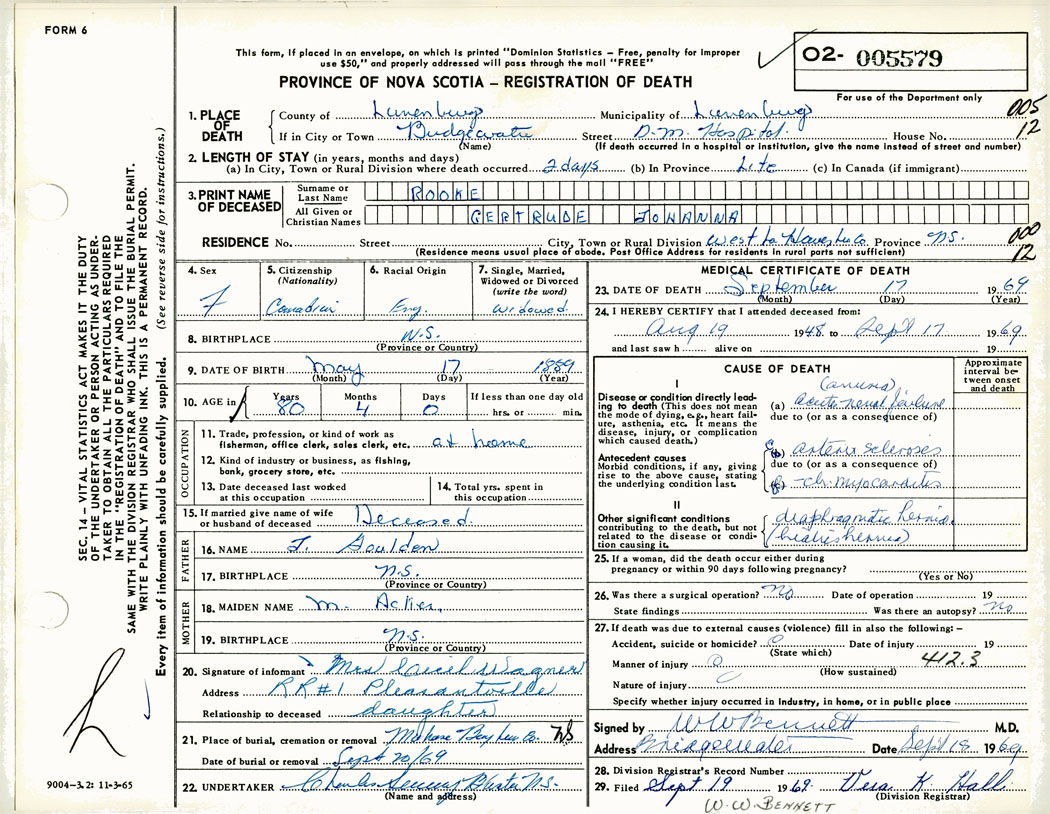 FORM 6
This form, if placed in an envelope, on which is printed "Dominion Statistics – Free, penalty for improper
use $50," and properly addressed will pass through the mail "FREE"
O2- 005579
PROVINCE OF NOVA SCOTIA – REGISTRATION OF DEATH
For use of the Department only
005
12
1. PLACE OF DEATH
County of Lunenburg Municipality of Lunenburg
If in City or Town Bridgewater Street D.M. Hospital. House No.
(Name) (If death occurred in a hospital or institution, give the name instead of street and number)
2. LENGTH OF STAY (in years, months and days)
(a) In City, Town or Rural Division where death occurred 2 days (b) In Province Life (c) In Canada (if immigrant)
3. PRINT NAME OF DECEASED
Surname or Last Name ROOKE
All Given or Christian Names GERTRUDE JOHANNA
000
12
RESIDENCE No. Street City, Town or Rural Division West La Have Lu Co. Province N.S.
(Residence means usual place of abode. Post Office Address for residents in rural ports not sufficient)
4. Sex
F
5. Citizenship
(Nationality)
Canadian
6. Racial Origin
Eng.
7. Single, Married,
Widowed or Divorced
(write the word)
Widowed.
8. BIRTHPLACE N.S.
(Province or Country)
9. DATE OF BIRTH May 17 1889
(Month) (Day) (Year)
10. AGE in Years Months Days If less than one day old
80 4 0 hrs. or min.
OCCUPATION
11. Trade, profession, or kind of work as
fishermon, office clerk, sales clerk, etc. at home
12. Kind of industry or business, as fishing,
bank, grocery store, etc.
13. Date deceased last worked
at this occupation
14. Total yrs. spent in
this occupation
15. If married give name of wife
or husband of deceased Deceased.
FATHER
16. NAME J. Goulden
17. BIRTHPLACE N.S.
(Province or Country)
MOTHER
18. MAIDEN NAME M. Acker,
19. BIRTHPLACE N.S.
(Province or Country)
20. Signature of informant Mrs Cecil Wagner
Address RR#1 Pleasantville
Relationship to deceased daughter
21. Place of burial, cremation or removal Mahone Bay Lun Co. NS
Date of burial or removal Sept 20/69
22. UNDERTAKER Chester N.S.
(Name and address)
MEDICAL CERTIFICATE OF DEATH
23. DATE OF DEATH September 17 1969
(Month) (Day) (Year)
24. I HEREBY CERTIFY that I attended deceased from:
Aug 19 1948 to Sept 17 1969
and last saw h alive on 19
CAUSE OF DEATH
Approximate
interval be-
tween onset
and death
I
Disease or condition directly lead-
ing to death (This does not mean
the mode of dying, e.g., heart fail-
ure, asthenia, etc. It means the
disease, injury, or complication
which caused death.)
(anuria)
(a) Acute renal failure
due to (or as a consequence of)
Antecedent causes
Morbid conditions, if any, giving
rise to the above cause, stating
the underlying condition last.
(b) arterio sclerosis
due to (or as a consequence of)
ch. myocarditis
II
Other significant conditions
contributing to the death, but not
related to the disease or condi-
tion causing it.
diaphragmatic hernia
(hiatus hernia)
25. If a woman, did the death occur either during
pregnancy or within 90 days following pregnancy?
(Yes or No)
26. Was there a surgical operation? No Date of operation 19
State findings Was there an autopsy? No
27. If death was due to external causes (violence) fill in also the following: –
Accident, suicide or homicide? Date of injury 19
(State which) 412.3
Manner of injury
(How sustained)
Nature of injury
Specify whether injury occurred in industry, in home, or in public place
Signed by W W Bennett M.D.
Address Bridgewater Date Sept 18 1969
28. Division Registrar's Record Number
29. Filed Sept 19 1969. Vera K Hall
(Division Registrar)
W.W. BENNETT
SEC. 14 – VITAL STATISTICS ACT MAKES IT THE DUTY
OF THE UNDERTAKER OR PERSON ACTING AS UNDER-
TAKER TO OBTAIN ALL THE PARTICULARS REQUIRED
IN THE "REGISTRATION OF DEATH" AND TO FILE THE
SAME WITH THE DIVISION REGISTRAR WHO SHALL ISSUE THE BURIAL PERMIT.
WRITE PLAINLY WITH UNFADING INK. THIS IS A PERMANENT RECORD.
Every item of information should be carefully supplied. (See reverse side for instructions.)
9004–3.2: 11-3-65